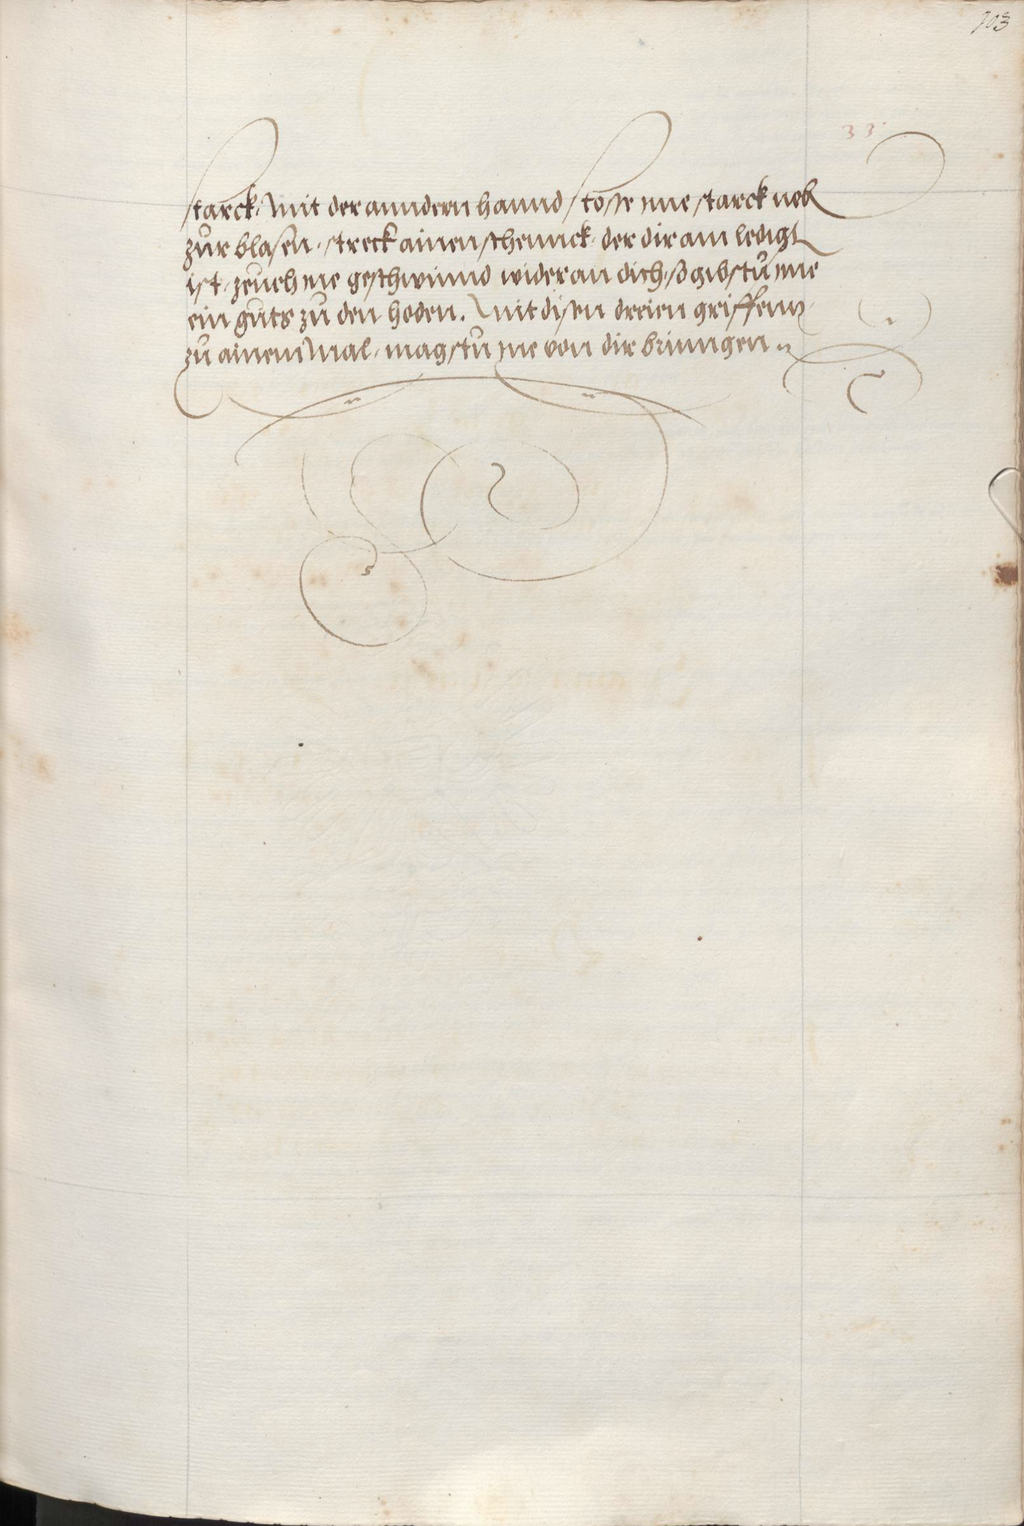 103
33
starck, Mit der anndern hannd stosse inne starck neb
zůr blasen, streck ainen schennck, der dir am ledigst
ist, zeuch ine geschwinnd wider an dich, so gibstů ime
ein guts zů den hoden. Mit disen dreien griffenn,
zů ainem Mal, magstů ine von dir bringen